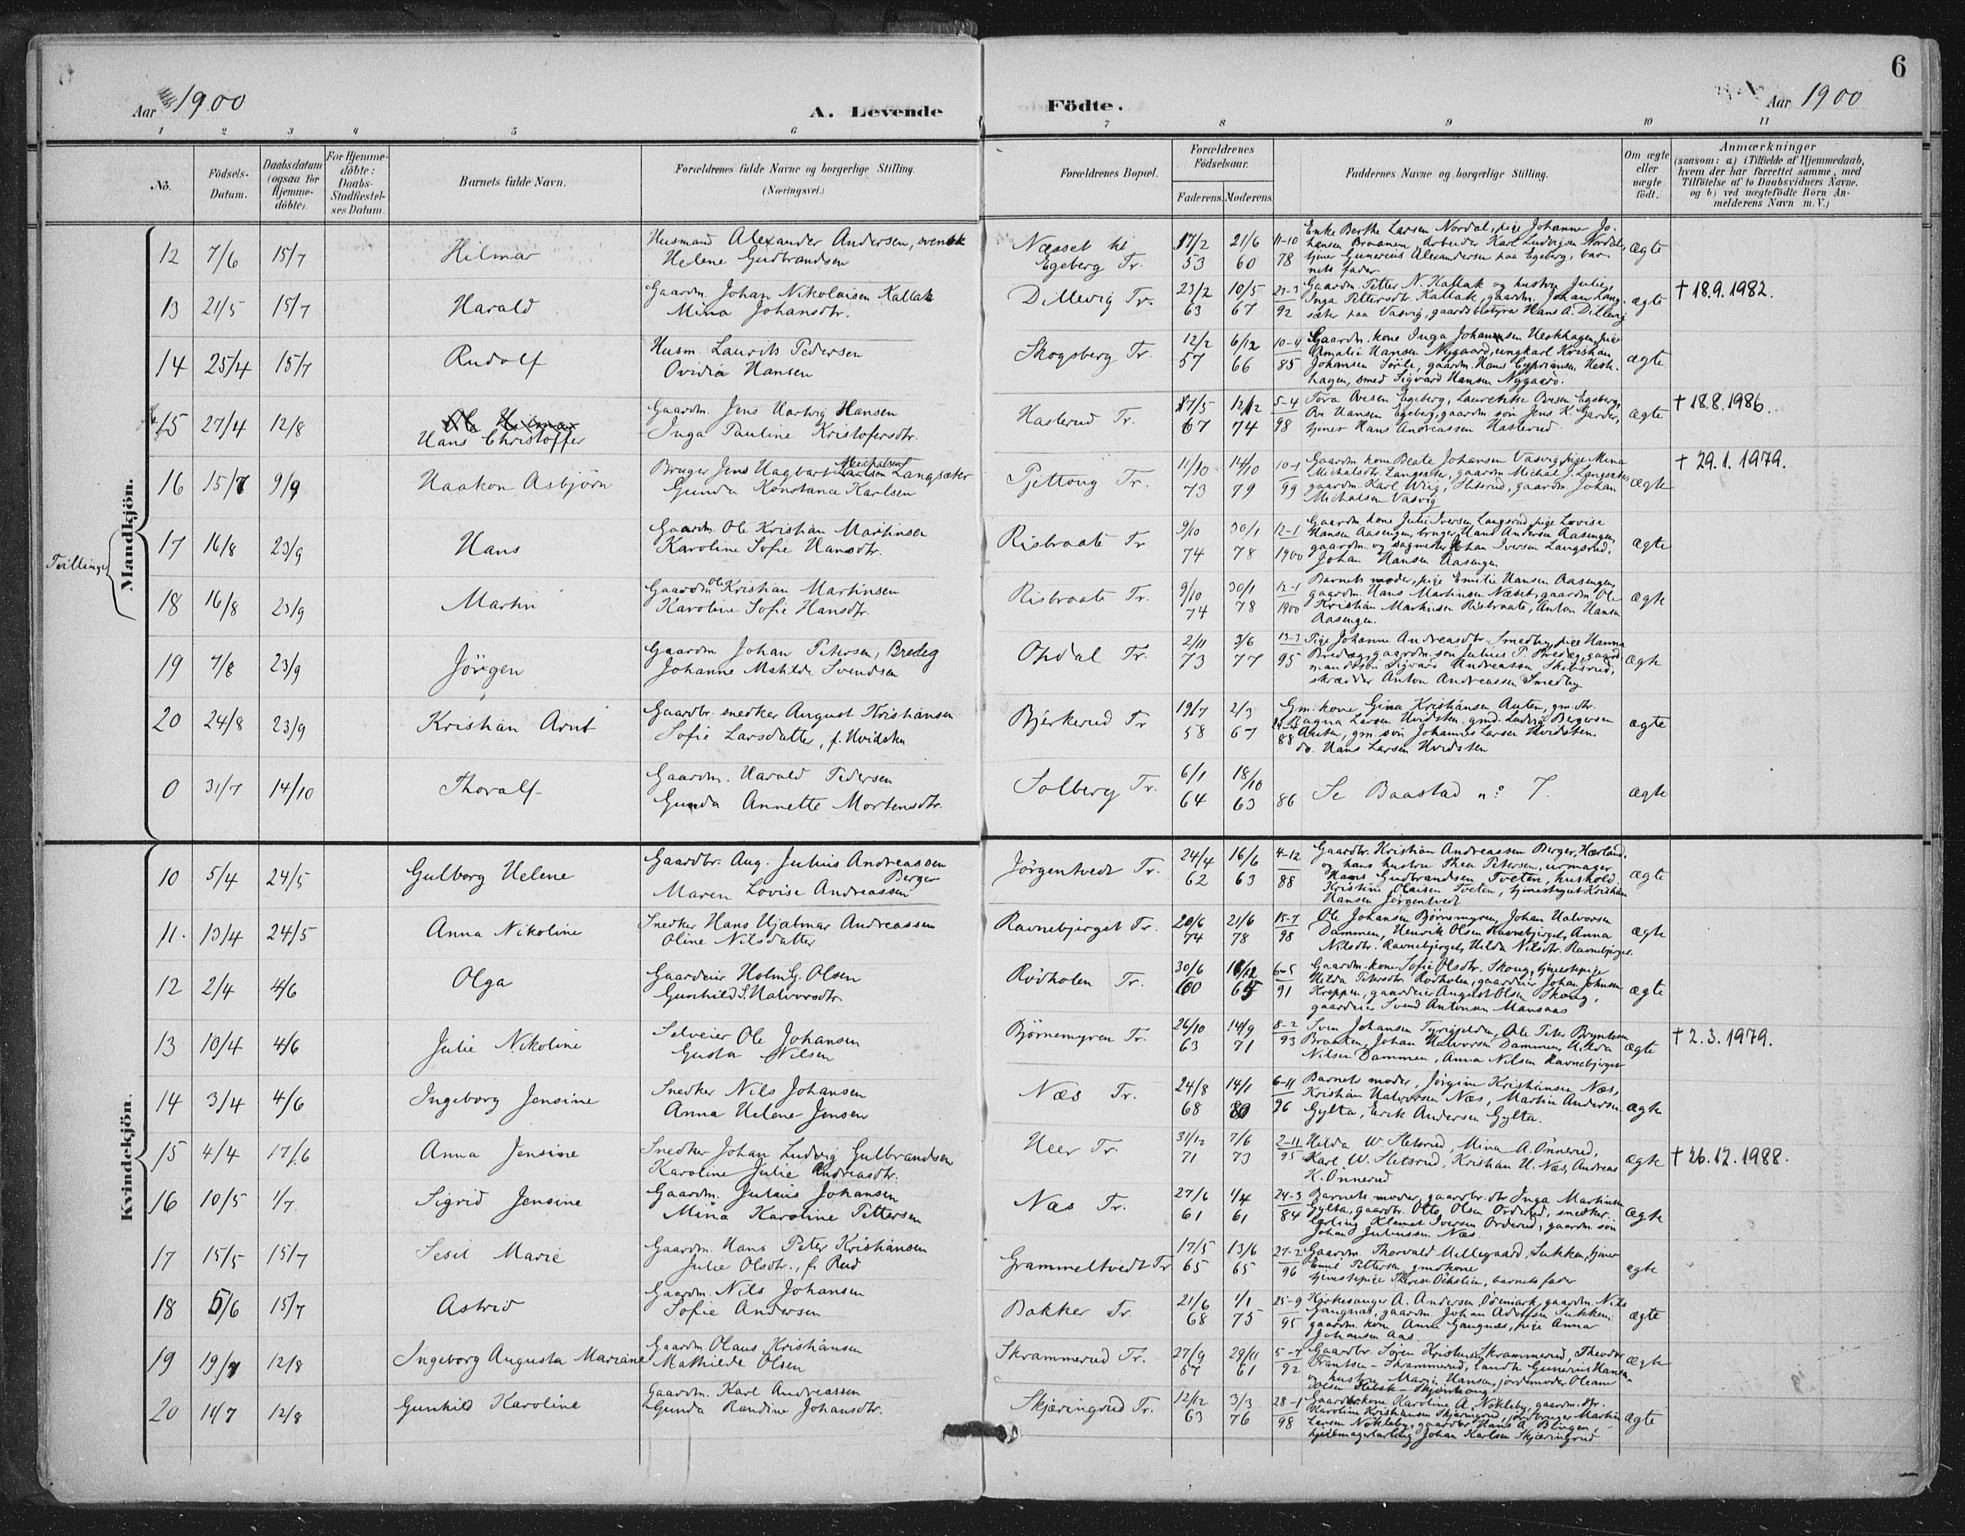 Aar 1900
A. Levende
Födte.
Aar 1900
6
1 2 3 4 5 6 7 8 9 10 11
Nö.
Födsels-Datum.
Daabsdatum (ogsaa for Hjemme-döbte).
For Hjemme-döbte: Daabs-Stadfæstel-ses Datum.
Barnets fulde Navn.
Forældrenes fulde Navne og borgerlige Stilling (Næringsvei.)
Forældrenes Bopæl.
Forældrenes Födselsaar.
Faderens. Moderens.
Faddernes Navne og borgerlige Stilling.
Om ægte eller uægte födt.
Anmærkninger
(saasom: a) i Tilfælde af Hjemmedaab,
hvem der har forrettet samme, med
Tilföielse af to Daabsvidners Navne.
og b) ved uægtefödte Börn An-
melderens Navn m. V.)
Mandkjön.
Tvillinger
12 7/6 15/7 Hilmar
Husmand Alexander Andersen, svensk
Helene Gudbrandsen
Næsset
Egeberg Tr.
17/2 53 21/6 60 11-10 78
Enke Berthe Larsen Nordal, pige Johanne Jo-
hansen Braanen, Arbeider Karl Ludvigsen Nordal,
tjener Gunerius Alexandersen paa Egeberg, bar-
nets fader
ægte
13 21/5 15/7 Harald
Gaardm. Johan Nikolaisen Kallak
Mina Johansdtr.
Dillevig Tr.
23/2 63 10/5 67 23-3 92
Gaardm. Petter N. Kallak og hustru Julie,
Inga Pettersdtr Kallak, gaardm. Johan Lang-
sæter paa Vasvig, gaardbestyrer Hans A. Dillevig
ægte
† 18.9.1982.
14 25/4 15/7 Rudolf
Husm. Laurits Pedersen
Ovidia Hansen
Skogsberg Tr.
12/2 57 6/12 66 10-4 85
Gaardm. kone Inga Johansen Heskhagen, pige
Amalie Hansen Nygaard, ungkarl Kristian
Johansen Sörli, gaardm. Hans Cypriansen Hesk-
hagen, smed Sigvard Hansen Nygaard.
ægte
15 27/4 12/8 Hans Christoffer
Gaardm. Jens Hartvig Hansen
Inga Pauline Kristofersdtr.
Haslerud Tr.
17/5 67 12/12 74 5-4 98
Tora Ovesen Egeberg, Laurekke Ovesen Egeberg,
Ove Hansen Egeberg, gaardm. søn Jens K. Garder,
tjener Hans Andreassen Haslerud
ægte
† 18.8.1986.
16 15/7 9/9 Haakon Asbjörn
Bruger Jens Hagbart Michalsen Langsæter
Gunda Konstance Karlsen
Tjettoug Tr.
11/10 73 14/10 79 10-1 99
Gaardm. kone Beate Johansen Vasvig, pige Mina
Michalsdtr. Langsæter, gaardm Michal J. Langsæter,
gaardm Karl Wiig, Sletsrud, gaardm Johan
Michalsen Vasvig
ægte
† 29.1.1979.
17 16/8 23/9 Hans
Gaardm Ole Kristian Martinsen
Karoline Sofie Hansdtr.
Risbraate Tr
9/10 74 30/1 78 12-1 1900
Gaardm kone Julie Iversen Langsrud, pige Lovise
Hansen Aasengen, bruger Hans Andersen Aasengen,
gaardm. og sagmester Johan Iversen Langsrud,
Johan Hansen Aasengen
ægte
18 16/8 23/9 Martin
Gaardm Ole Kristian Martinsen
Karoline Sofie Hansdtr.
Risbraate Tr.
9/10 74 30/1 78 12-1 1900
Barnets moder, pige Emilie Hansen Aasengen,
gaardm. Hans Martinsen Næset, gaardm. Ole
Kristian Martinsen Risbraate, Anton Hansen
Aasengen.
ægte
19 7/8 23/9 Jörgen
Gaardm Johan Petersen, Bredeg
Johanne Mathilde Svendsen
Opdal Tr.
2/11 73 3/6 77 13-3 95
Pige Johanne Andreasdtr. Smedby, pige Hanna
Bredeg, gaardm. søn Julius P. Bredeg, gaard-
mandssøn Sigvard Andreassen Skibsrud,
skrædder Anton Andreassen Smedby
ægte
20 24/8 23/9 Kristian Arnt
Gaardbr. snedker August Kristiansen
Sofie Larsdatter, f. Hvidsten
Bjerkerud Tr
19/7 58 2/3 67 88
G.m. kone Gina Kristiansen Auten, gm. dtr.
Ragna Larsen Hvidsten, gmd. Ludvig Bergersen
Auten, gm. søn Johannes Larsen Hvidsten.
do. Hans Larsen Hvidsten
ægte
0 31/7 14/10 Thoralf
Gaardm. Harald Pedersen
Gunda Annette Mortensdtr.
Solberg Tr.
6/1 64 18/10 63 86
Se Baastad nº 7.
ægte
Kvindekjön.
10 5/4 24/5 Gulborg Helene
Gaardbr. Aug. Julius Andreassen
Berger
Maren Lovise Andreassen
Jørgentvedt Tr.
24/4 62 16/6 63 4-12 88
Gaardbr. Kristian Andreassen Berger, Hærland,
og hans hustru Thea Petersen, urmager
Hans Gudbrandsen Tveten, hushold.
Kristine Olaisen Tveten, tjenestegut Kristian
Hansen Jørgentvedt
ægte
11. 13/4 24/5 Anna Nikoline
Snedker Hans Hjalmar Andreassen
Oline Nilsdatter
Ravnebjerget Tr.
20/6 74 21/6 78 15-7 98
Ole Johansen Bjørnemyren, Johan Halvorsen
Dammen, Henrik Olsen Ravnebjerget, Anna
Nilsdtr. Ravnebjerget, Hilda Nilsdtr. Ravnebjerget.
ægte
12 2/4 4/6 Olga
Gaardeier Holm G. Olsen
Gunhild S. Halvorsdtr.
Rødholen Tr.
30/6 60 11/12 65 6-5 91
Gaardm. kone Sofie Olsdtr. Skoug, tjenestepige
Hilda Petersdtr Rødholen, gaardeier Johan Johnsen
Kreppen, gaardeier August Olsen Skoug,
gaardeier Svend Antonsen Mansaas
ægte
13 10/4 4/6 Julie Nikoline
Selveier Ole Johansen
Gusta Nilsen
Bjørnemyren Tr.
26/10 63 14/9 71 8-2 93
Sven Johansen Tyrigjelden, Ole Peter Bryntesen
Braaten, Johan Halvorsen Dammen, Hilda
Nilsen Dammen, Anna Nilsen Ravnebjerget
ægte
† 2.3.1979.
14 3/4 4/6 Ingeborg Jensine
Snedker Nils Johansen
Anna Helene Jensen
Næs Tr.
24/8 68 14/1 80 6-11 96
Barnets moder, Jørgine Kristiansen Næs,
Kristian Halvorsen Næs, Martin Andersen
Gylta, Erik Andersen Gylta.
ægte
15 4/4 17/6 Anna Jensine
Snedker Johan Ludvig Gulbrandsen
Karoline Julie Andreasdtr.
Heer Tr.
31/12 71 7/6 73 2-11 95
Hilda W. Sletsrud, Mina A. Önnerud,
Karl W. Sletsrud, Kristian H. Næs, Andreas
K. Önnerud
ægte
† 26.12.1988.
16 10/5 1/7. Sigrid Jensine
Gaardm. Julius Johansen
Mina Karoline Pettersen
Næs Tr.
27/6 61 1/4 61 24-3 84
Barnets moder, gaardbr. dtr Inga Martinsen
Gylta, gaardbr. Otto Olsen Orderud, snedker-
lærling Klemet Iversen Orderud, gaardm. søn
Johan Juliussen Næs.
ægte
17 15/5 15/7 Sesil Marie
Gaardm. Hans Peter Kristiansen
Julie Olsdtr., f. Rud
Grammeltvedt Tr
17/5 65 13/6 65 27-2 96
Gaardm. Thorvald Millegaard, Sukken, tjener
Emil Pettersen, gmdkone
tjenestepige Therese Öihslein, barnets fader
ægte
18 5/6 15/7 Astrid
Gaardm. Nils Johansen
Sofie Andersen
Bakker Tr.
21/6 68 1/1 75 25-9 95
Kirkesanger A. Andersen, Ödemark, gaardm. Nils
Gangnæs, gaardm. Johan Adolfsen Sukken,
gaardm. kone Anne Gangnæs, pige Anna
Johansen Aas.
ægte
19 19/7 12/8 Ingeborg Augusta Mariane
Gaardm Olaus Kristiansen
Mathilde Olsen
Skrammerud Tr.
27/9 67 29/11 61 5-7 92
Gaardbr. Søren Kristiansen Skrammerud, Theodor
Frantsen - Skrammerud, landh. Gunerius Hansen
og hustru Maria Hansen, jordemoder Oleane
ægte
20 11/7 12/8 Gunhild Karoline
Gaardm. Karl Andreassen
Gunda Randine Johansdtr.
Skjæringrud Tr.
12/12 63 3/3 76 28-1 98
Gaardbr. kone Karoline A. Nökleby, gaardm. dtr.
Karoline Kristiansen Skjæringrud, jordbruger Martin
Larsen Nökleby, gaardbr Hans A. Blingen,
hjulmagerlærling Johan Karlsen Skjæringrud
ægte